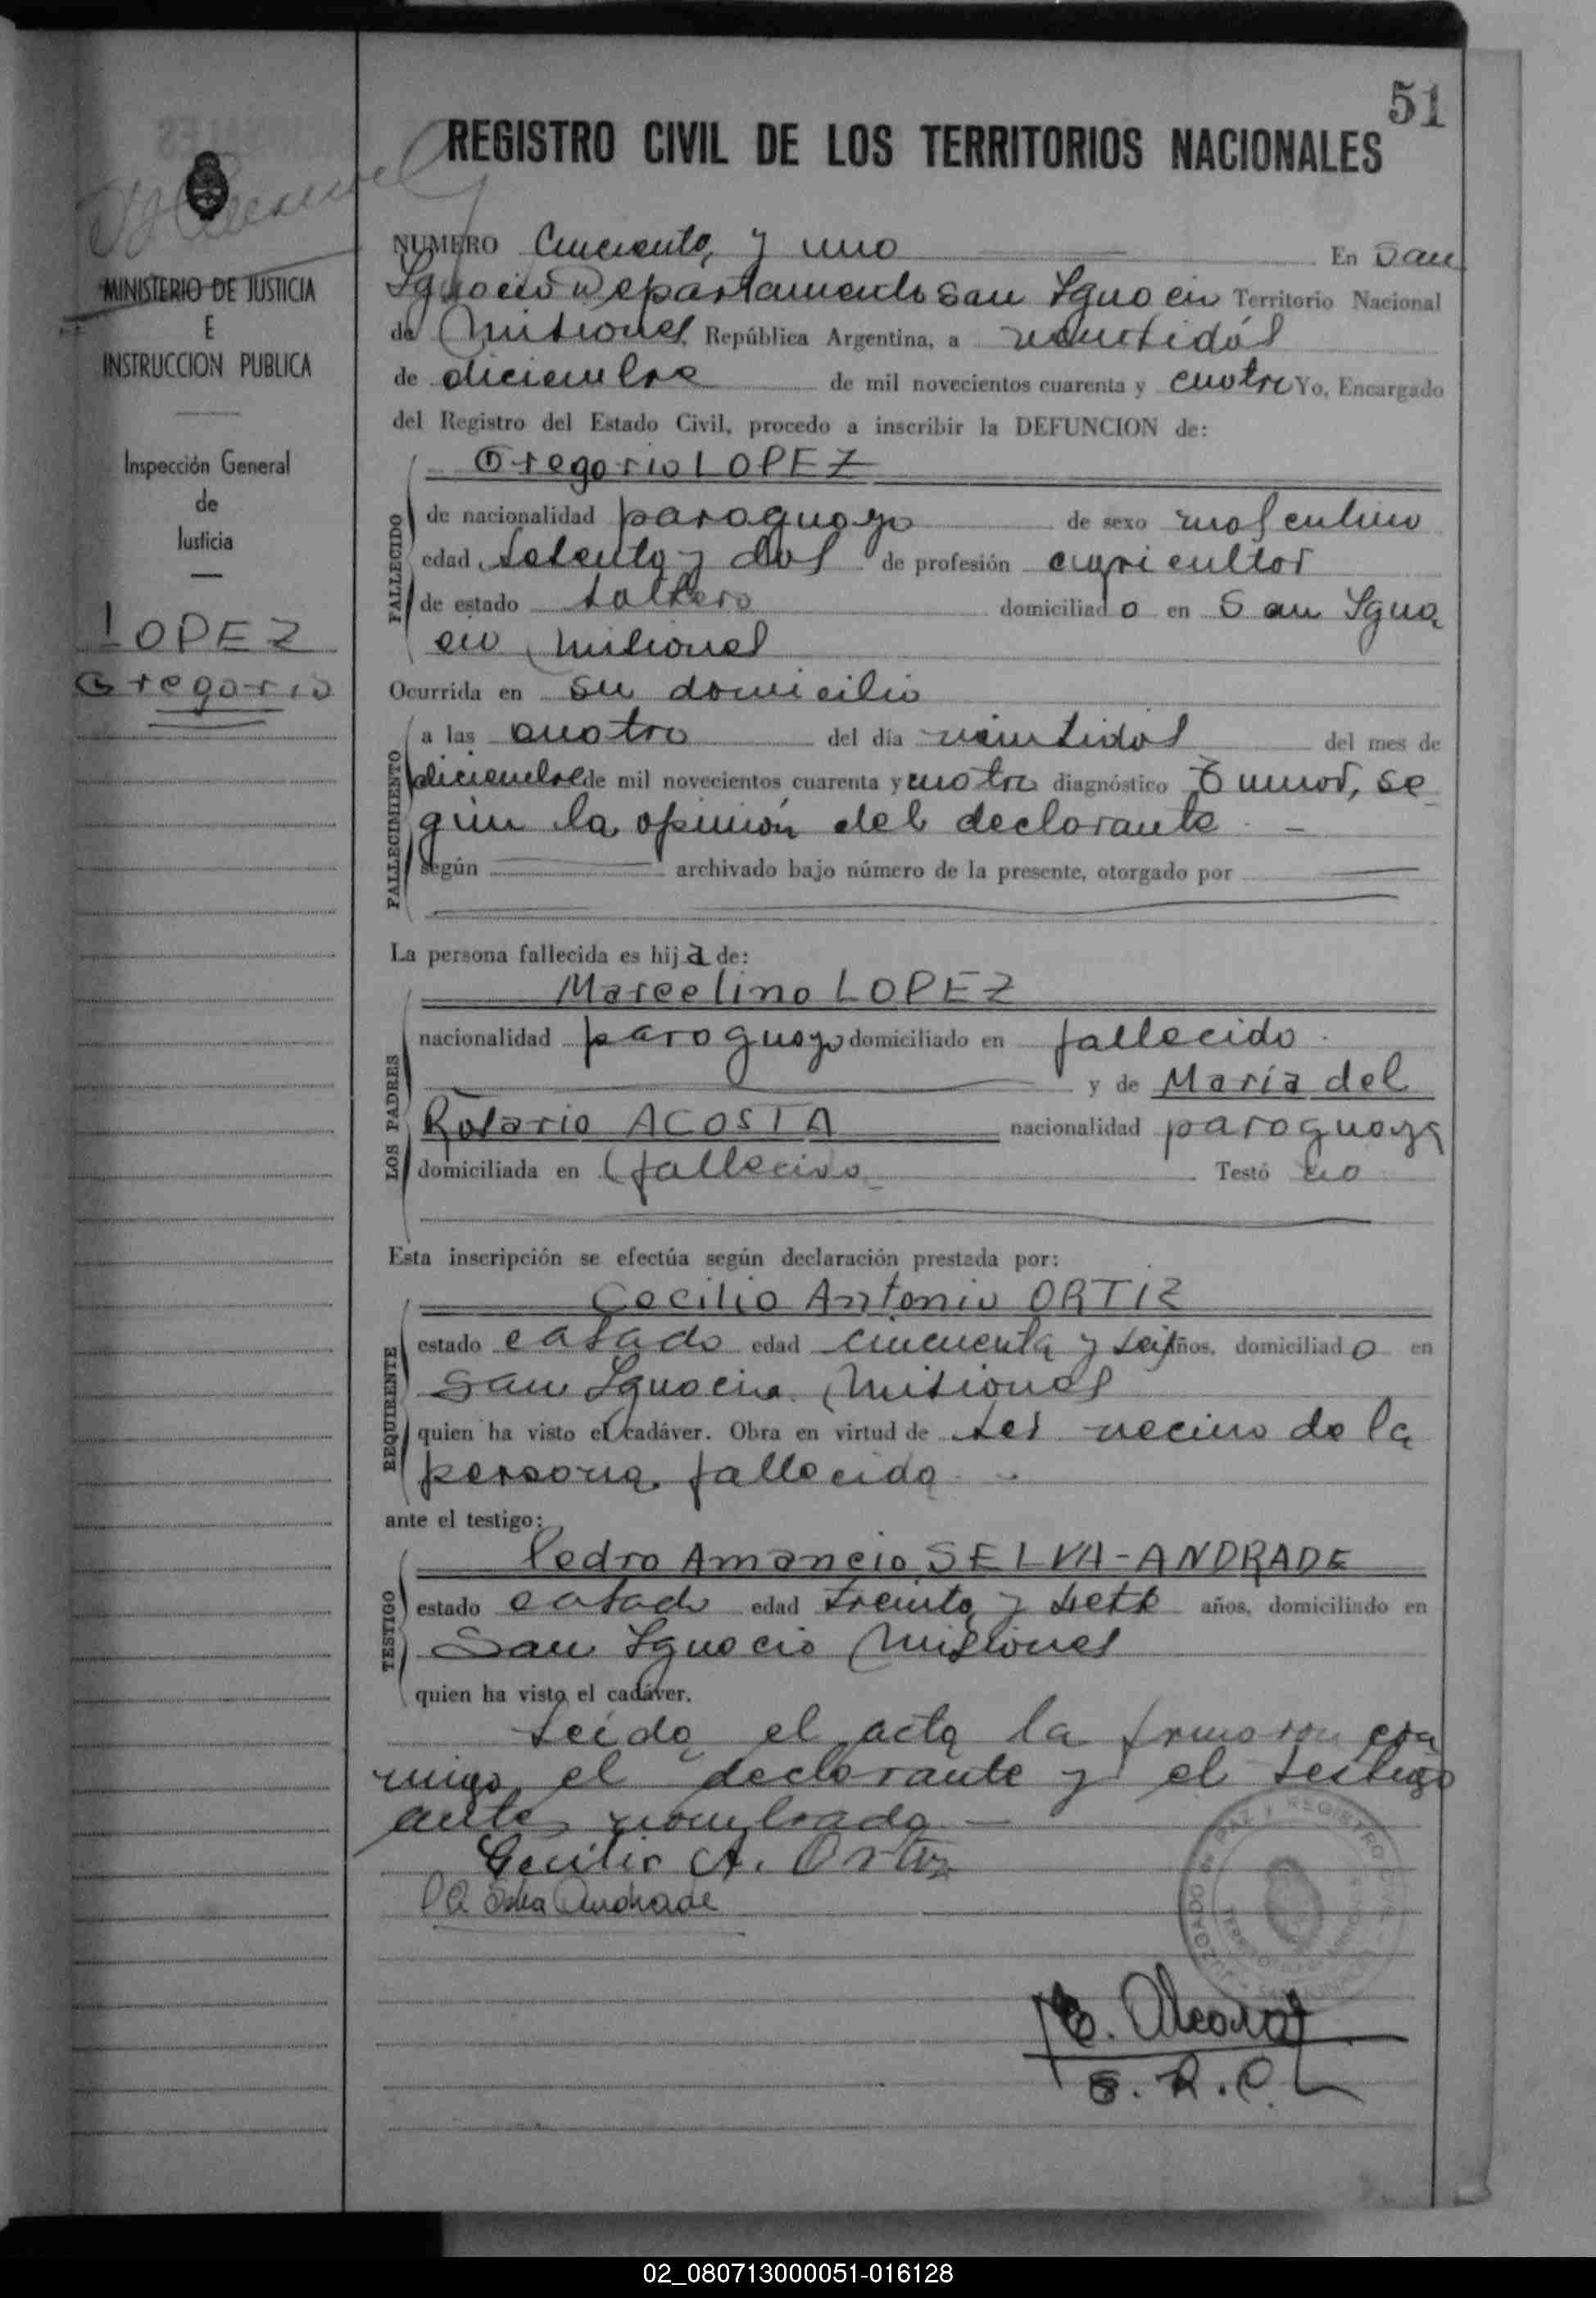 51
REGISTRO CIVIL DE LOS TERRITORIOS NACIONALES
MINISTERIO DE JUSTICIA
E
INSTRUCCION PUBLICA
Inspección General
de
Justicia
LOPEZ
Gregorio
NUMERO Cincuenta y uno En San
Ignacio Departamento San Ignacio Territorio Nacional
de Misiones República Argentina, a veintidós
de diciembre de mil novecientos cuarenta y cuatro Yo, Encargado
del Registro del Estado Civil, procedo a inscribir la DEFUNCION de:
Gregorio LOPEZ
FALLECIDO
de nacionalidad paraguayo de sexo masculino
edad setenta y dos de profesión agricultor
de estado soltero domiciliado en San Igna
cio Misiones
Ocurrida en su domicilio
FALLECIMIENTO
a las cuatro del día veintidos del mes de
diciembre de mil novecientos cuarenta y cuatro diagnóstico Tumor, se
gún la opinión del declarante
según archivado bajo número de la presente, otorgado por
La persona fallecida es hija de:
Marcelino LOPEZ
LOS PADRES
nacionalidad paraguayo domiciliado en fallecido
y de María del
Rosario ACOSTA nacionalidad paraguaya
domiciliada en fallecida Testó no
Esta inscripción se efectúa según declaración prestada por:
Cecilio Antonio ORTIZ
REQUIRENTE
estado casado edad cincuenta y seis años, domiciliado en
San Ignacio Misiones
quien ha visto el cadáver. Obra en virtud de ser vecino de la
persona fallecida
ante el testigo:
Pedro Amancio SELVA-ANDRADE
TESTIGO
estado casado edad treinta y siete años, domiciliado en
San Ignacio Misiones
quien ha visto el cadáver.
Leída el acta la firmaron con
migo el declarante y el testigo
antes nombrado
Cecilio A. Ortiz
PA Selva Andrade
JUZGADO DE PAZ Y REGISTRO CIVIL
E. R. C.
02_080713000051-016128